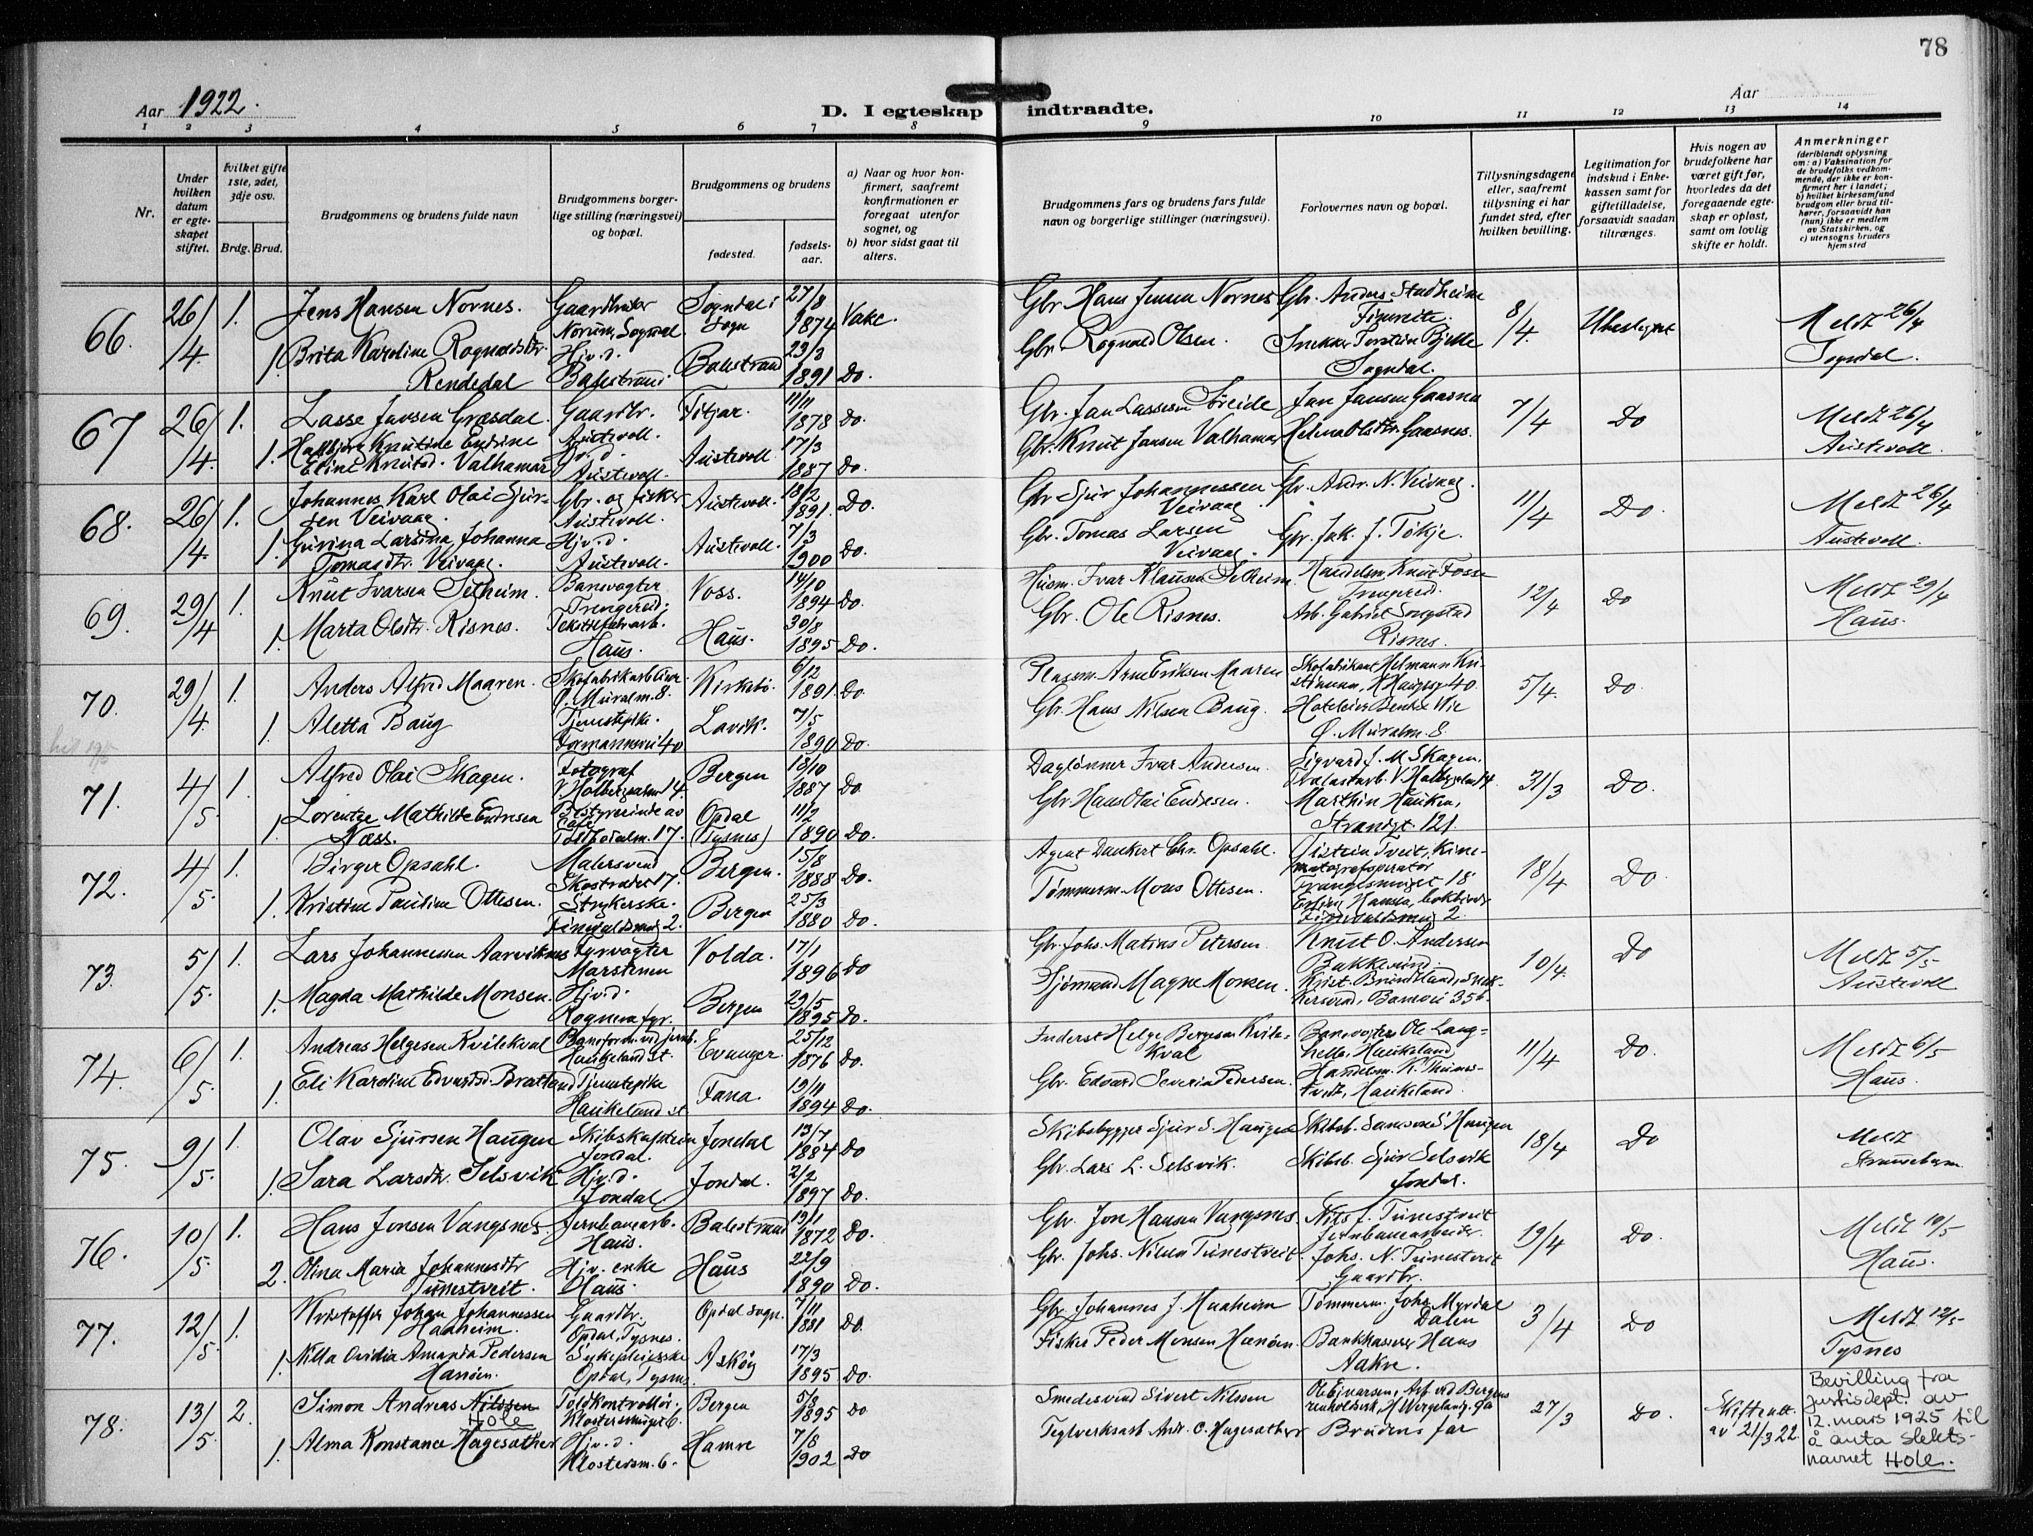 78
Aar 1922.
D. I egteskap indtraadte.
Aar
1 2 3 4 5 6 7 8 9 10 11 12 13 14
Nr.
Under hvilken datum er egteskapet stiftet.
hvilket gifte 1ste, 2det, 3dje osv.
Brdg. Brud.
Brudgommens og brudens fulde navn
Brudgommens borgerlige stilling (næringsvei) og bopæl.
Brudgommens og brudens
fødested.
fødselsaar.
a) Naar og hvor konfirmert, saafremt konfirmationen er foregaat utenfor sognet, og
b) hvor sidst gaat til alters.
Brudgommens fars og brudens fars fulde navn og borgerlige stillinger (næringsvei).
Forlovernes navn og bopæl.
Tillysningsdagene eller, saafremt tillysning ei har fundet sted, efter hvilken bevilling.
Legitimation for indskud i Enkekassen samt for giftetilladelse, forsaavidt saadan tiltrænges.
Hvis nogen av brudefolkene har været gift før, hvorledes da det foregaaende egteskap er opløst, samt om lovlig skifte er holdt.
Anmerkninger
(deriblandt oplysning om: a) Vaksination for de brudefolks vedkommende, der ikke er konfirmert her i landet; b) hvilket kirkesamfund brudgom eller brud tilhører, forsaavidt han (hun) ikke er medlem av Statskirken, og c) utensogns bruders hjemsted
66. 26/4 1. Jens Hansen Nornes. Gaardbruker Norum, Sogndal Sogndal i Sogn 27/8 1874 Vake. Gbr. Hans Jensen Nornes Gbr. Anders Stadheim Fimreite. 8/4 Ubeslegtet Meldt 26/4 Sogndal.
1. Brita Karoline Ragnvaldsdtr. Rendedal Hjv.d. Balestrand Balestrand 23/3 1891 Do. Gbr. Ragnvald Olsen. Snekker Torstein Bjelle Sogndal.
67 26/4 1. Lasse Jansen Græsdal. Gaardbr. Austevoll. Fitjar. 11/11 1878 Do. Gbr. Jan Lassesen Søreide Jan Jansen Gaasnes 7/4 Do Meldt 26/4 Austevoll
1. Hallbjørg Knutine Endrine Eline Knutsd. Valhamar Hjv.d. Austevoll. Austevoll 17/3 1887 Do. Gbr. Knut Jansen Valhamar Helena Olsdtr. Gaasnes.
68. 26/4 1. Johannes Karl Olai Sjursen Veivaag. Gbr. og fisker Austevoll. Austevoll. 18/2 1891. Do. Gbr Sjur Johannessen Veivaag Gbr. Andr. N. Veivaag. 11/4 Do. Meldt 26/4 Austevoll.
1. Gurina Larsina Johanna Tomasdtr. Veivaag. Hjv.d. Austevoll. Austevoll. 7/3 1900 Do. Gbr. Tomas Larsen Veivaag. Gbr. Jak. J. Tøkje.
69. 29/4 1. Knut Ivarsen Selheim. Banevogter Trengereid; Voss. 14/10 1894 Do. Husm. Ivar Klausen Selheim. Handelsm. Knut Fosse Trengereid. 12/4 Do Meldt 29/4 Haus.
1. Marta Olsdtr. Risnes. Tekstilfabrarb. Haus. Haus. 30/8 1895 Do. Gbr. Ole Risnes. Arb. Gabriel Songstad Risnes.
70. 29/4 1. Anders Alfred Maaren. Skofabrikarbeider. Ø. Muralm. 8. Kirkebø. 6/12 1891 Do Plasm. Arne Eriksen Maaren Skofabrikant Helmann Kristiansen, H Haugesg 40. 5/4. Do.
1. Aletta Baug Tjenestepike. Formannsvei 40 Lavik. 7/5 1890 Do. Gbr. Hans Nilsen Baug. Hoteleier Bendik Vie Ø. Muralm. 8
71. 4/5 1. Alfred Olai Skagen. Fotograf V. Holbergsalm 14. Bergen 18/10 1887 Do Daglønner Ivar Andersen. Sigvard J. M. Skagen, V. Holbergsalm 14 31/3 Do.
1. Lorentze Mathilde Endresen Næss. Bestyrerinde av Café Toldbodalm. 17. Opdal (Tysnes) 11/2 1890 Do. Gbr. Hans Olai Endresen. Marthin Hauken, Strandgt. 121.
72. 4/5 1. Birger Opsahl. Malersvend Skostrædet 17. Bergen. 15/8 1888 Do. Agent Dankert Chr. Opsahl. Øistein Tveit, Kinematografoperatør 18 18/4 Do.
1. Kristine Pauline Ottesen. Strykerske. Bergen 25/3 1880 Do. Tømmerm. Mons Ottesen. Hansen, bokbinder 2.
73. 5/5 1. Lars Johannessen Aarviknes Fyrvogter Marstenen Volda. 17/1 1896 Do Gbr. Johs. Matias Petersen. Knut O. Andersen Bakkesund. 10/4. Do Meldt 5/5 Austevoll
1. Magda Mathilde Monsen. Hjv.d. Bergen 29/5 1895 Do. Sjømand Magne Monsen. Krist. Brundtland, Snekkersvend, 35 b.
74. 6/5 1. Andreas Helgesen Kvilekval Haukeland st. Evanger. 25/12 1876 Do. Inderst Helge Bergesen Kvilekval Banevogter Ole Langhelle, Haukeland 11/4 Do. Meldt 6/5 Haus.
1. Eli Karoline Edvardsd. Bratland Tjenestepike Haukeland st Fana. 19/11 1894 Do. Gbr. Edvard Severin Pedersen. Handelsm. K. Thunestvedt, Haukeland.
75. 9/5. 1. Olav Sjursen Haugen Skibskaptein Jondal. Jondal 13/7 1884 Do Skibsbygger Sjur S. Haugen Skibsb. Samson S. Haugen 18/4 Do Meldt Strandebarm
1. Sara Larsdtr. Selsvik Hjv.d. Jondal Jondal. 2/2 1897 Do. Gbr. Lars L. Selsvik. Skibsb. Sjur Selsvik Jondal.
76. 10/5 1. Hans Jonsen Vangsnes. Jernbanearb. Haus. Balestrand 19/1 1872 Do. Gbr. Jon Hansen Vangsnes. Nils J. Tunestveit Jernbanearbeider. 19/4 Do. Meldt 10/5 Haus.
2. Olina Maria Johannesdtr Tunestveit. Hjv. enke Haus. Haus 22/9 1890 Do. Gbr. Johs. Nilsen Tunestveit. Johs. N. Tunestveit Gaardbr.
77. 12/5 1. Kristoffer Johan Johannessen Haaheim. Gaardbr. Opdal, Tysnes. Opdal sogn. 7/11 1881 Do. Gbr. Johannes J. Haaheim Tømmerm. Johs. Myrdal Dalen 3/4 Do Meldt 12/5 Tysnes
1. Nilla Ovidia Amanda Pedersen Hanøen. Sykepleierske Opdal, Tysnes Askøy 17/3 1895 Do. Fisker Peder Monsen Hanøen. Bankkasserer Hans Aakre.
78. 13/5. 2. Simon Andreas Nilssen Hole Toldkontrollør, Klostersmuget 6. Bergen 5/8 1895 Do Smedesvend Sivert Nilssen Ole Ejvarsen, Arb ved Bergens renholdsverk, H Wergelandsg. 9a 27/3 Do. Skifteatt. av 21/3 22. Bevilling fra Justisdept. av 12. mars 1925 til å anta slektsnavnet Hole.
1. Alma Konstance Hagesæther Hjv.d. Klostersm. 6. Hamre 7/8 1902 Do Teglverksarb Andr. C. Hagesæther Brudens far